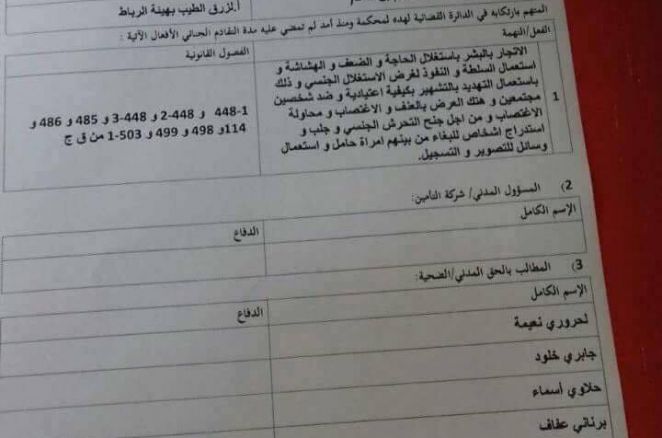 أ.لزرق الطيب بهيئة الرباط
المتهم بارتكابه في الدائرة القضائية لهذه لمحكمة ومنذ أمد لم تمضي عليه مدة التقادم الجنائي الأفعال الآتية :
الفعل/التهمة
الفصول القانونية
1
الاتجار بالبشر باستغلال الحاجة و الضعف و الهشاشة و
استعمال السلطة و النفوذ لغرض الاستغلال الجنسي و ذلك
باستعمال التهديد بالتشهير بكيفية اعتيادية و ضد شخصين
مجتمعين و هتك العرض بالعنف و الاغتصاب و محاولة
الاغتصاب و من اجل جنح التحرش الجنسي و جلب و
استدراج اشخاص للبغاء من بينهم امراة حامل و استعمال
وسائل للتصوير و التسجيل.
448-1 و 448-2 و 448-3 و 485 و 486 و
114و 498 و 499 و 503-1 من ق ج
2) المسؤول المدني/ شركة التأمين:
الإسم الكامل
الدفاع
3) المطالب بالحق المدني/الضحية:
الإسم الكامل
الدفاع
لحروري نعيمة
جابري خلود
حلاوي أسماء
برناني عفاف